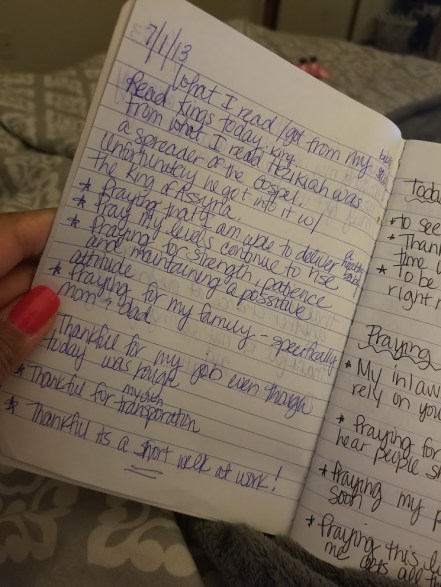 7/1/13
What I read/got from my
Read Kings today.
from what I read Hezikiah was
a spreader of the Gospel.
Unfortunately he got into it w/
the King of Assyria.
* Praying that I am able to deliver a
* Pray my levels continue to rise!
* Praying for strength, patience
and maintaining a possitive
attitude
* Praying for my family - specifically
mom & dad.
Thankful for my job even though
today was rough
* Thankful for my own transporation
* Thankful its a short week at work!
Toda
* to see
* Than
time
* To be
right
Praying
* My inlaw
rely on you
* Praying for
hear people s
* Praying my p
soon
* Praying this
me all